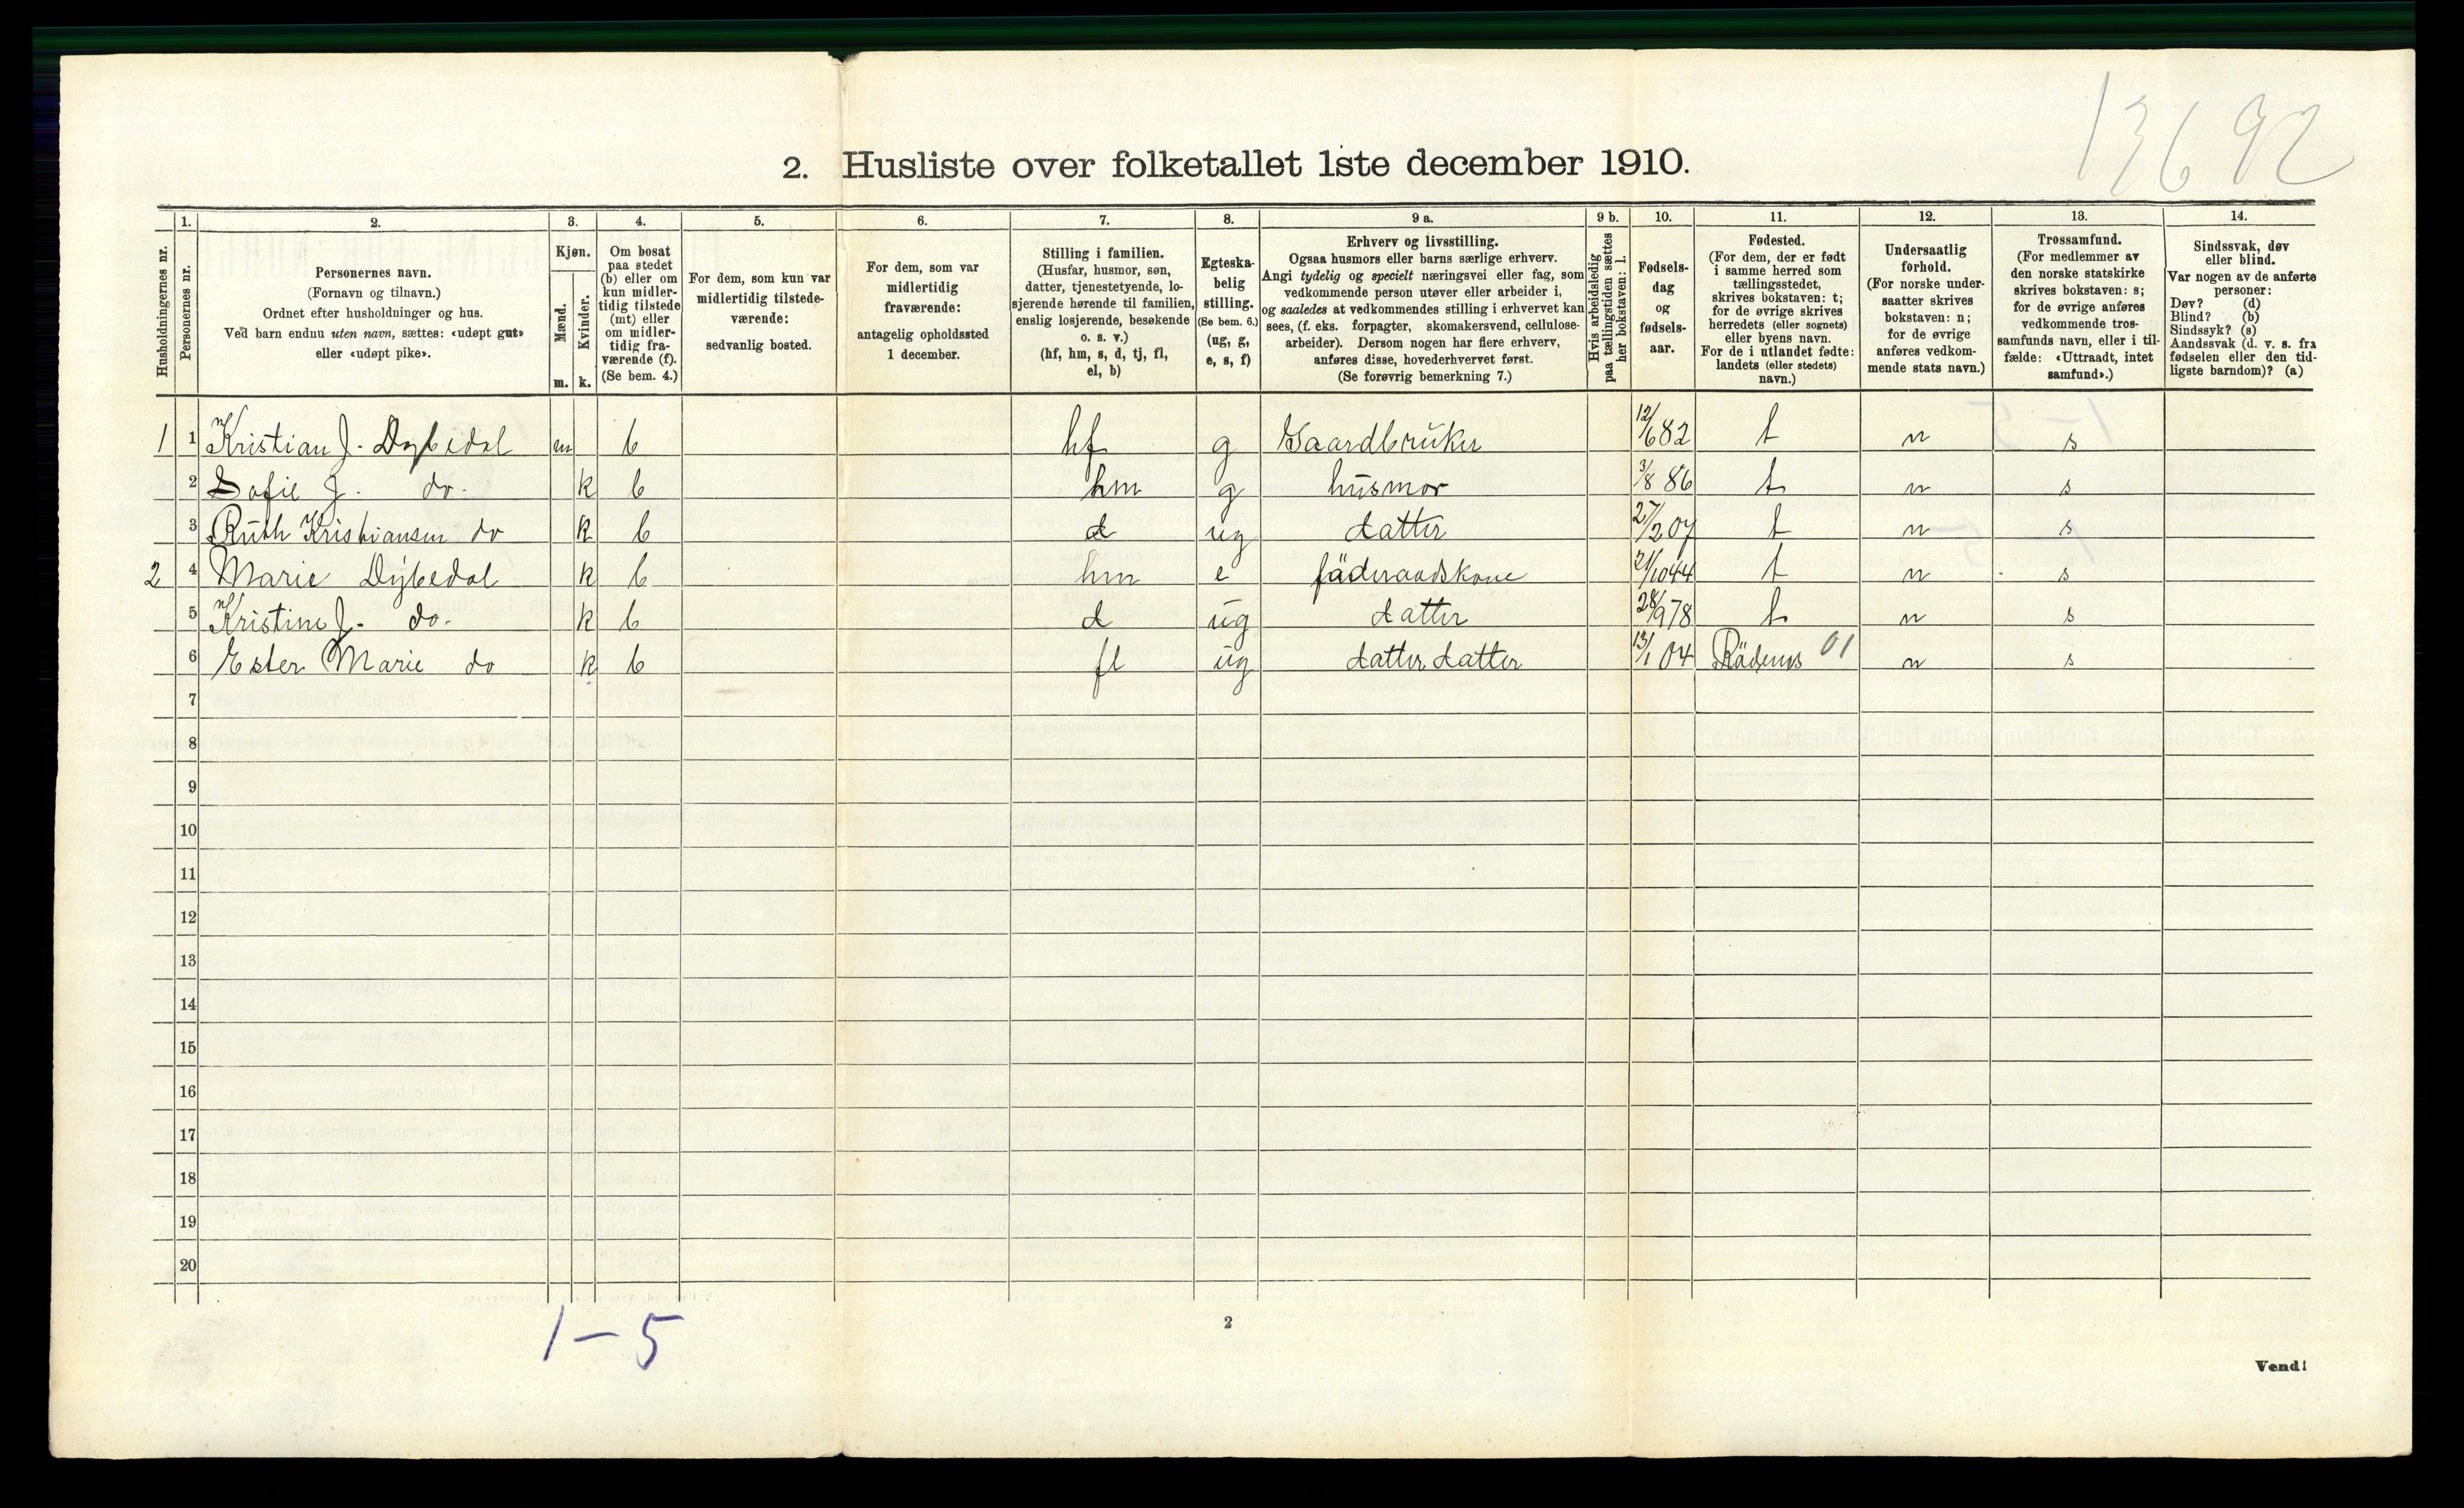 13692
2. Husliste over folketallet 1ste december 1910.
Husholdningernes nr.
1.
Personernes nr.
2.
Personernes navn.
(Fornavn og tilnavn.)
Ordnet efter husholdninger og hus.
Ved barn endnu uten navn, sættes: «udøpt gut»
eller «udøpt pike».
3.
Kjøn.
Mænd.
Kvinder.
m. k.
4.
Om bosat
paa stedet
(b) eller om
kun midler-
tidig tilstede
(mt) eller
om midler-
tidig fra-
værende (f).
(Se bem. 4.)
5.
For dem, som kun var
midlertidig tilstede-
værende:
sedvanlig bosted.
6.
For dem, som var
midlertidig
fraværende:
antagelig opholdssted
1 december.
7.
Stilling i familien.
(Husfar, husmor, søn,
datter, tjenestetyende, lo-
sjerende hørende til familien,
enslig losjerende, besøkende
o. s. v.)
(hf, hm, s, d, tj, fl,
el, b)
8.
Egteska-
belig
stilling.
(Se bem. 6.)
(ug, g,
e, s, f)
9 a.
Erhverv og livsstilling.
Ogsaa husmors eller barns særlige erhverv.
Angi tydelig og specielt næringsvei eller fag, som
vedkommende person utøver eller arbeider i,
og saaledes at vedkommendes stilling i erhvervet kan
sees, (f. eks. forpagter, skomakersvend, cellulose-
arbeider). Dersom nogen har flere erhverv,
anføres disse, hovederhvervet først.
(Se forøvrig bemerkning 7.)
9 b.
Hvis arbeidsledig
paa tællingstiden sættes
her bokstaven: l.
10.
Fødsels-
dag
og
fødsels-
aar.
11.
Fødested.
(For dem, der er født
i samme herred som
tællingsstedet,
skrives bokstaven: t;
for de øvrige skrives
herredets (eller sognets)
eller byens navn.
For de i utlandet fødte:
landets (eller stedets)
navn.)
12.
Undersaatlig
forhold.
(For norske under-
saatter skrives
bokstaven: n;
for de øvrige
anføres vedkom-
mende stats navn.)
13.
Trossamfund.
(For medlemmer av
den norske statskirke
skrives bokstaven: s;
for de øvrige anføres
vedkommende tros-
samfunds navn, eller i til-
fælde: «Uttraadt, intet
samfund».)
14.
Sindssvak, døv
eller blind.
Var nogen av de anførte
personer:
Døv? (d)
Blind? (b)
Sindssyk? (s)
Aandssvak (d. v. s. fra
fødselen eller den tid-
ligste barndom)? (a)
1 1 Kristian J. Dybedal m b hf g Gaardbruker 12/6 82 t n s
2 Sofie J. do. k b hm g husmor 3/8 86 t n s
3 Ruth Kristiansen do k b d ug datter 27/2 07 t n s
2 4 Marie Dybedal k b hm e føderaadskone 21/10 44 t n s
5 Kristine J. do. k b d ug datter 28/9 78 t n s
6 Ester Marie do k b fl ug datter datter 13/1 04 Rødenes 01 n s
7
8
9
10
11
12
13
14
15
16
17
18
19
20
1-5
2
Vend!